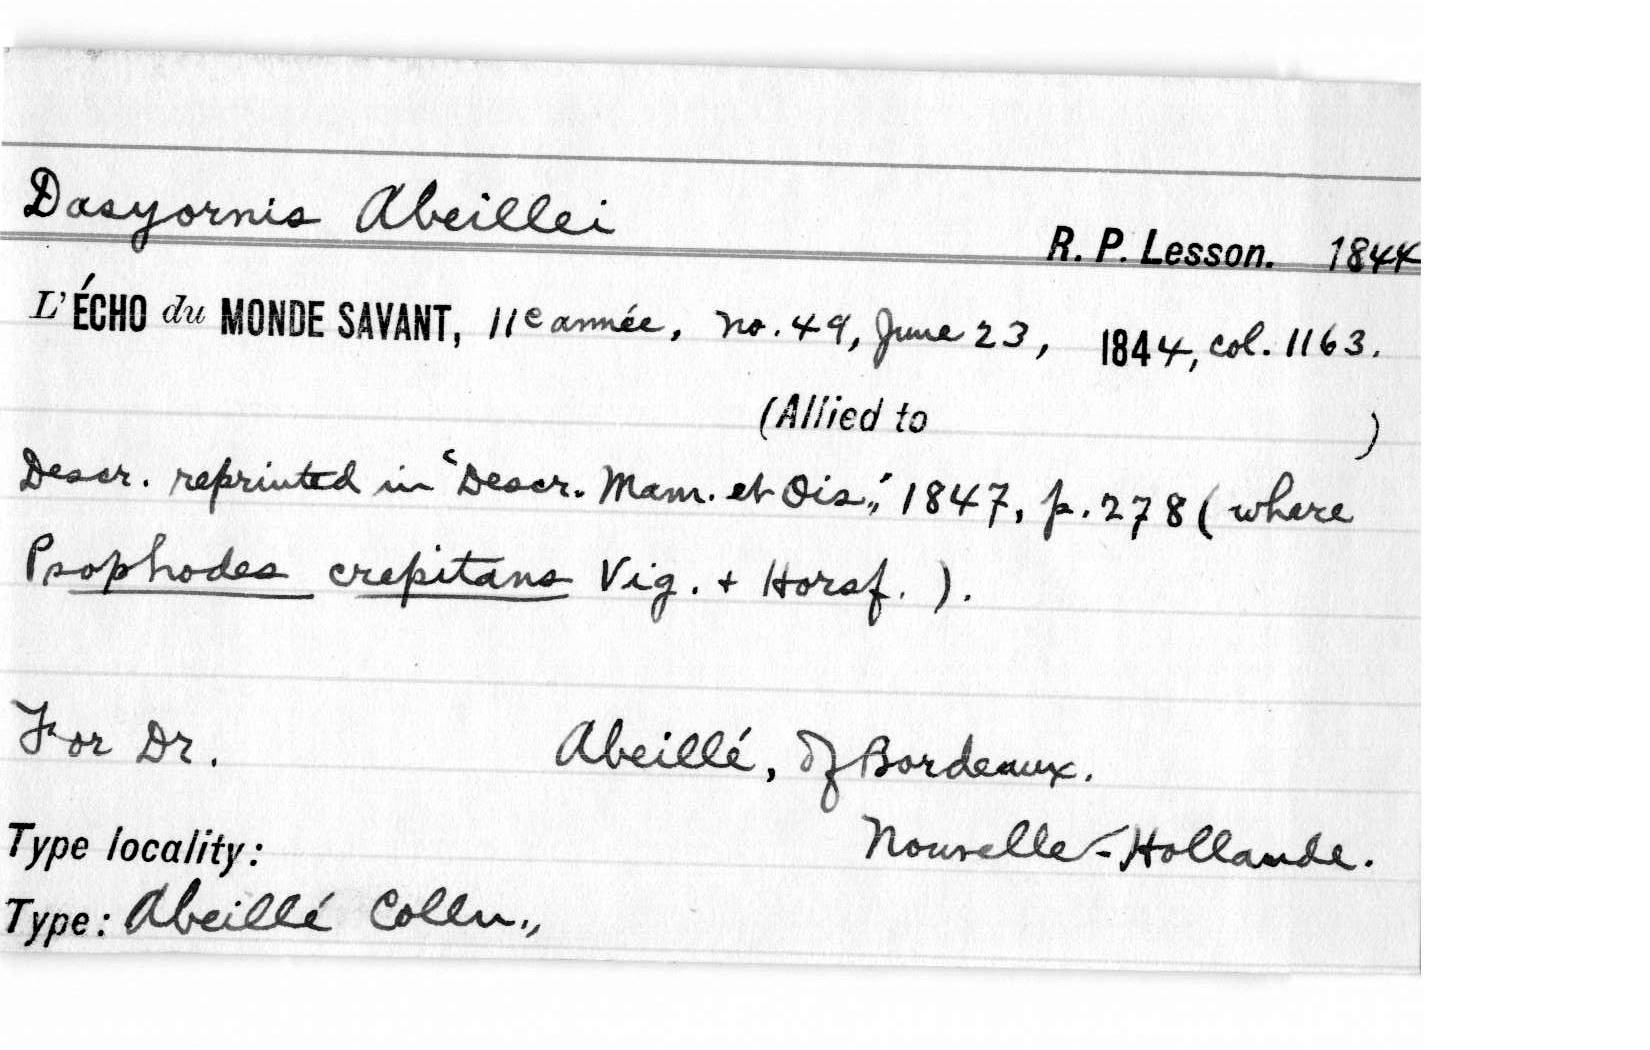 Dasyornis Abeillei
R. P. Lesson. 1844
L'ÉCHO du MONDE SAVANT, 11e année, no. 49, June 23, 1844, col. 1163.
(Allied to )
Descr. reprinted in "Descr. Mam. et Ois.," 1847, p. 278 (where
Psophodes crepitans Vig. + Horsf. ).
For Dr. Abeillé, of Bordeaux.
Type locality: Nouvelle-Hollande.
Type: Abeillé Colln.,